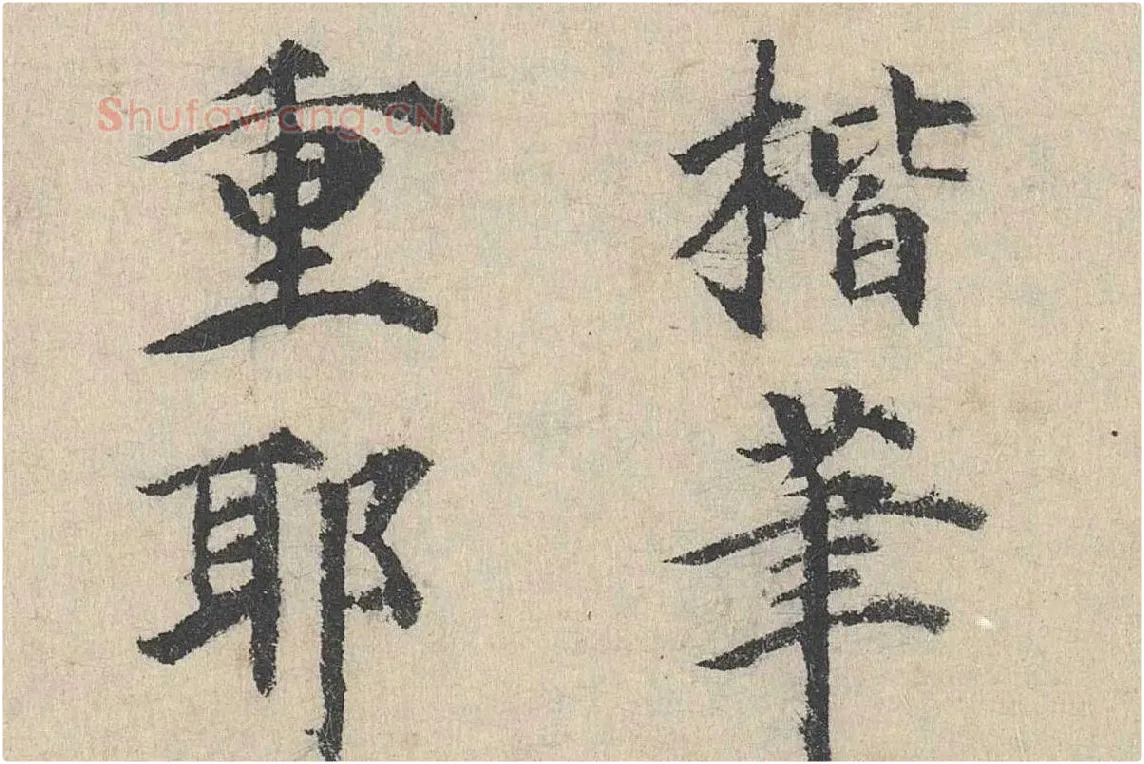 楷筆
重耶
Shufawang.CN